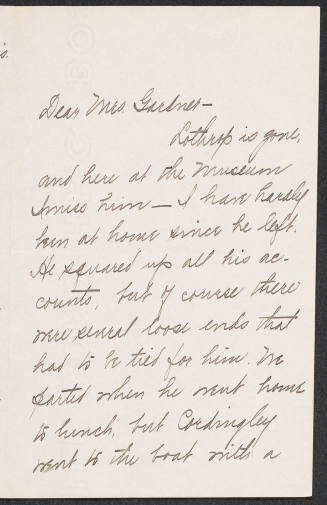 s.
Dear Mrs. Gardner—
Lothrop is gone,
and here at the Museum
I miss him — I have hardly
been at home since he left.
He squared up all his ac-
counts, but of course there
were several loose ends that
had to be tied for him. We
parted when he went home
to lunch, but Cordingley
went to the boat with a